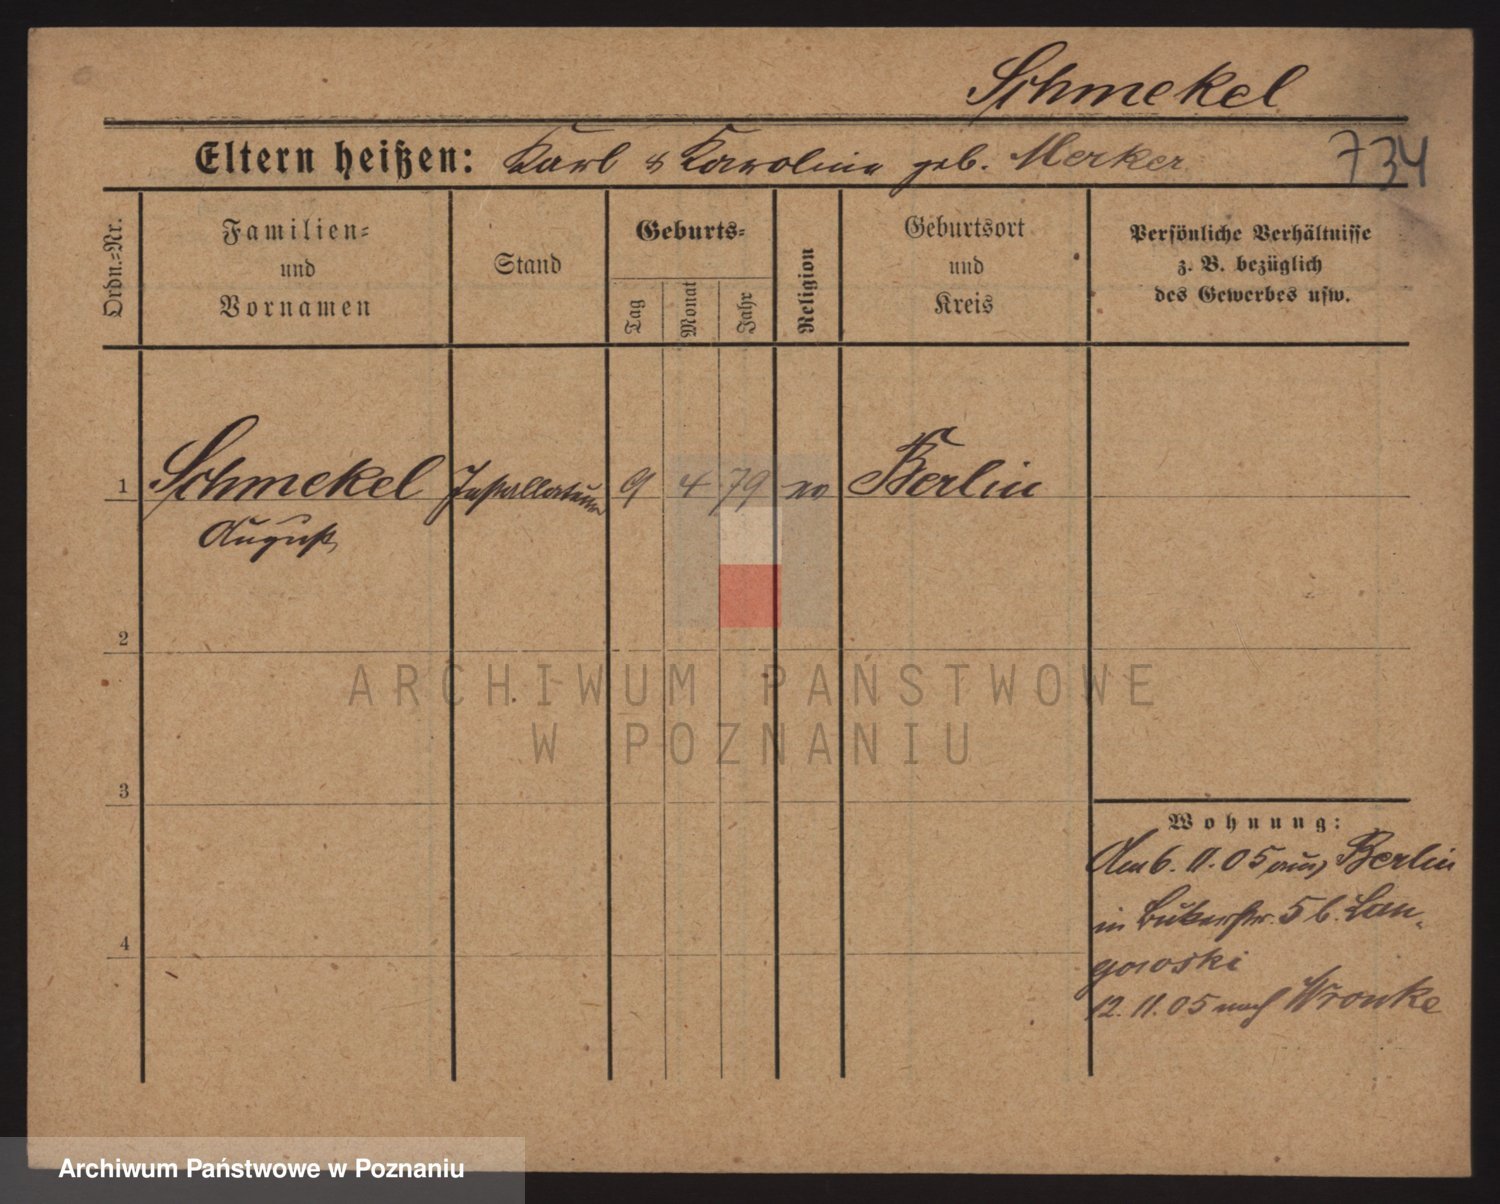 Schmekel
Eltern heißen: Karl & Karoline geb. Merker
734
Ordn.-Nr.
Familien-
und
Vornamen
Stand
Geburts-
Tag
Monat
Jahr
Religion
Geburtsort
und
Kreis
Persönliche Verhältnisse
z. B. bezüglich
des Gewerbes usw.
1 Schmekel Installateur 9 4 79 Berlin
August
2
3
4
Wohnung:
Am 6. 11. 05 aus Berlin
in Bukerstr. 5 b. Lan-
gowski
12. 11. 05 nach Wronke
ARCHIWUM PAŃSTWOWE
W POZNANIU
Archiwum Państwowe w Poznaniu